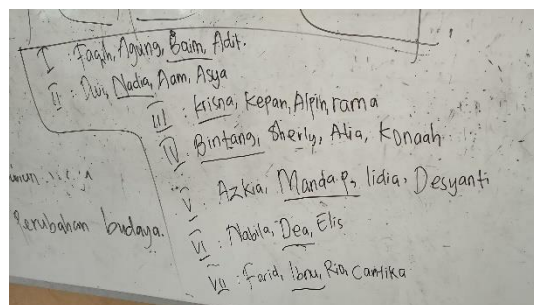 I : Faqih, Agung, Baim, Adit.
II : Dwi, Nadia, Aam, Asya
III : Krisna, Kepan, Alpin, rama
IV : Bintang, Sherly, Alia, Konaah
V : Azkia, Manda P, lidia, Desyanti
Perubahan budaya.
VI : Nabila, Dea, Elis
VII : Farid, Ibnu, Ria, Cantika